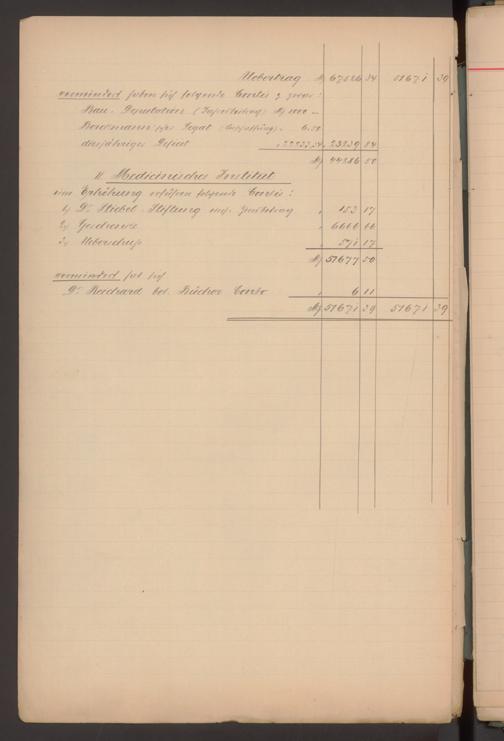 Uebertrag M 67526 34 51671 39
vermindert haben sich folgende Conti's & zwar:
Bau-Deputation M 1000 —
Legat 6.50
diesjähriges Defizit 22233,34 23239 84
M 44286 50
II Medicinisches Institut
eine Erhöhung erfuhren folgende Conti's:
1) Dr. Stiebel-Stiftung 153 17
2) Geschenke 6666 66
3) Ueberschuss 571 17
M 51677 50
vermindert hat sich
Dr. Reichard bes. Bücher Conto 6 11
M 51671 39 51671 39